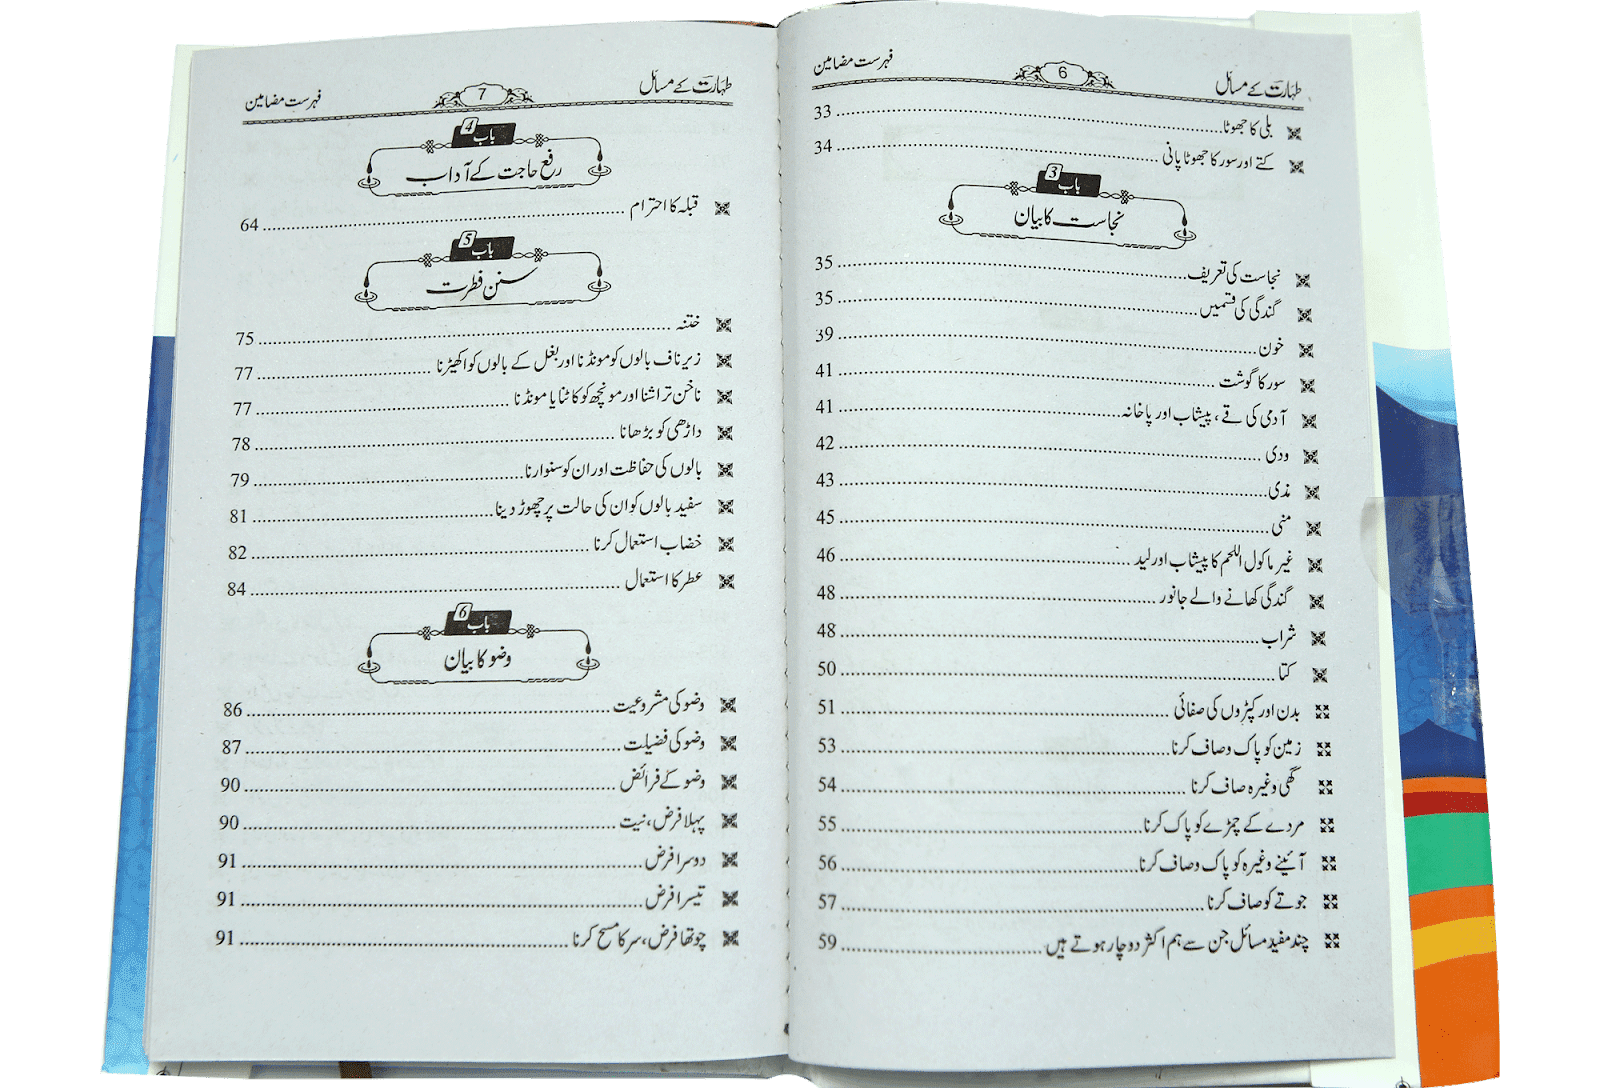 طہارت کے مسائل 6 فہرست مضامین
بلی کا جھوٹا 33
کتے اور سور کا جھوٹا پانی 34
باب 3
نجاست کا بیان
نجاست کی تعریف 35
گندگی کی قسمیں 35
خون 39
سور کا گوشت 41
آدمی کی قے، پیشاب اور پاخانہ 41
ودی 42
مذی 43
منی 45
غیر ماکول اللحم کا پیشاب اور لید 46
گندگی کھانے والے جانور 48
شراب 48
کتا 50
بدن اور کپڑوں کی صفائی 51
زمین کو پاک و صاف کرنا 53
گھی وغیرہ صاف کرنا 54
مردے کے چمڑے کو پاک کرنا 55
آئینے وغیرہ کو پاک و صاف کرنا 56
جوتے کو صاف کرنا 57
چند مفید مسائل جن سے ہم اکثر دوچار ہوتے ہیں 59
طہارت کے مسائل 7 فہرست مضامین
باب 4
رفع حاجت کے آداب
قبلہ کا احترام 64
باب 5
سنن فطرت
ختنہ 75
زیر ناف بالوں کو مونڈنا اور بغل کے بالوں کو اکھیڑنا 77
ناخن تراشنا اور مونچھ کو کاٹنا یا مونڈنا 77
داڑھی کو بڑھانا 78
بالوں کی حفاظت اور ان کو سنوارنا 79
سفید بالوں کو ان کی حالت پر چھوڑ دینا 81
خضاب استعمال کرنا 82
عطر کا استعمال 84
باب 6
وضو کا بیان
وضو کی مشروعیت 86
وضو کی فضیلت 87
وضو کے فرائض 90
پہلا فرض، نیت 90
دوسرا فرض 91
تیسرا فرض 91
چوتھا فرض، سر کا مسح کرنا 91